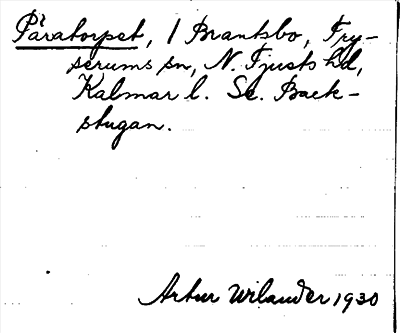 Påratorpet, / Brantsbo, Try-
serums sn, N. Tjusts hd,
Kalmar l. Se. Back-
stugan.
Artur Wilander 1930